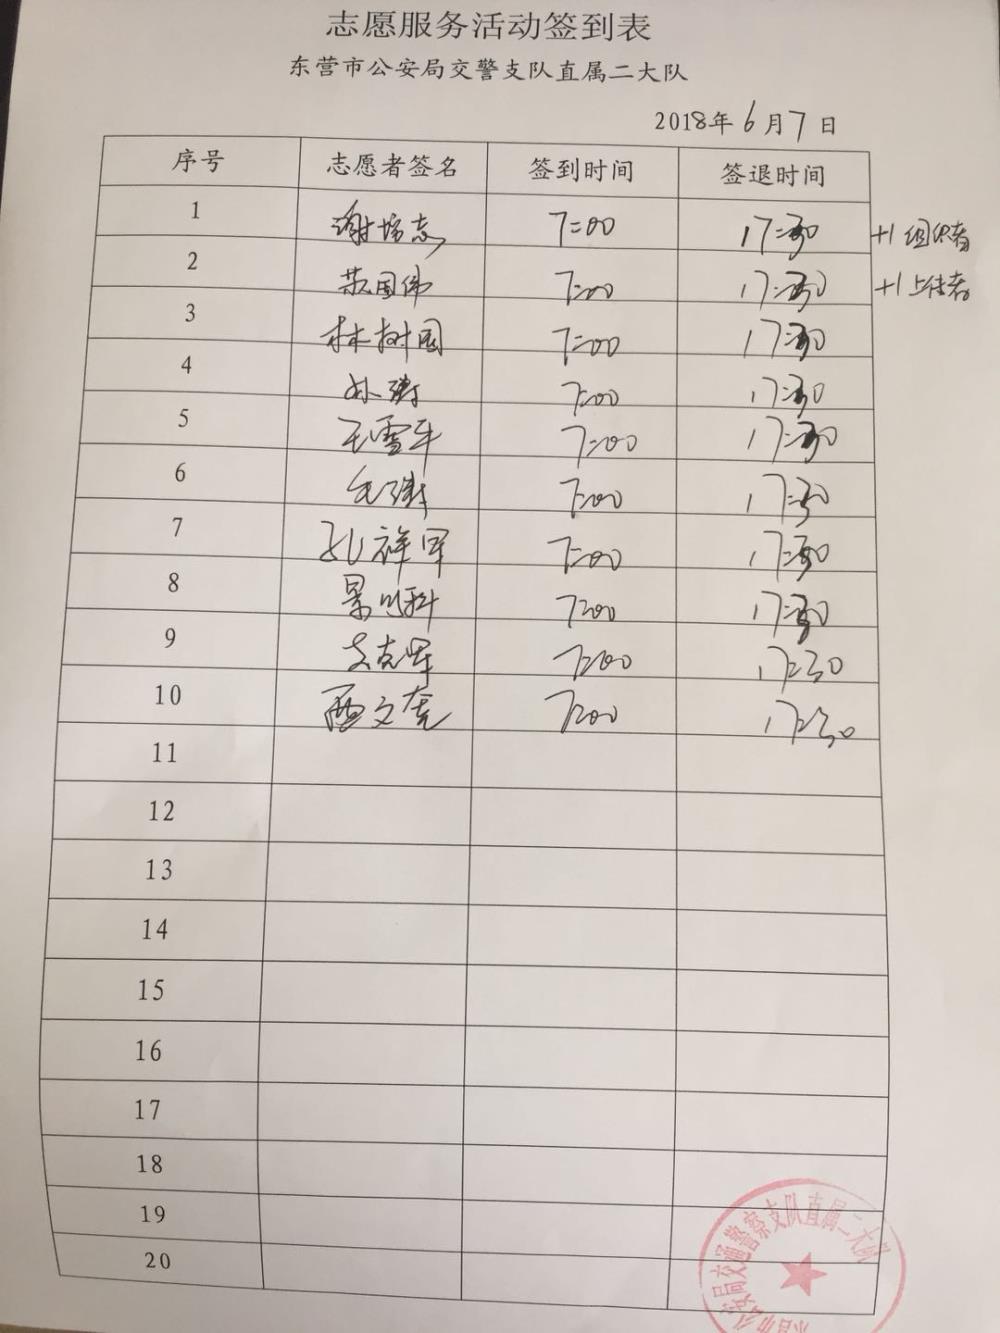 志愿服务活动签到表
东营市公安局交警支队直属二大队
2018年6月7日
序号 志愿者签名 签到时间 签退时间
1 谢培志 7:00 17:30 +1 组织者
2 国伟 7:00 17:30 +1 上传者
3 林树国 7:00 17:30
4 孙涛 7:00 17:30
5 王雪军 7:00 17:30
6 7:00 17:30
7 孔祥军 7:00 17:30
8 景科 7:00 17:30
9 克军 7:00 17:30
10 文 7:00 17:30
11
12
13
14
15
16
17
18
19
20
东营市公安局交通警察支队直属二大队